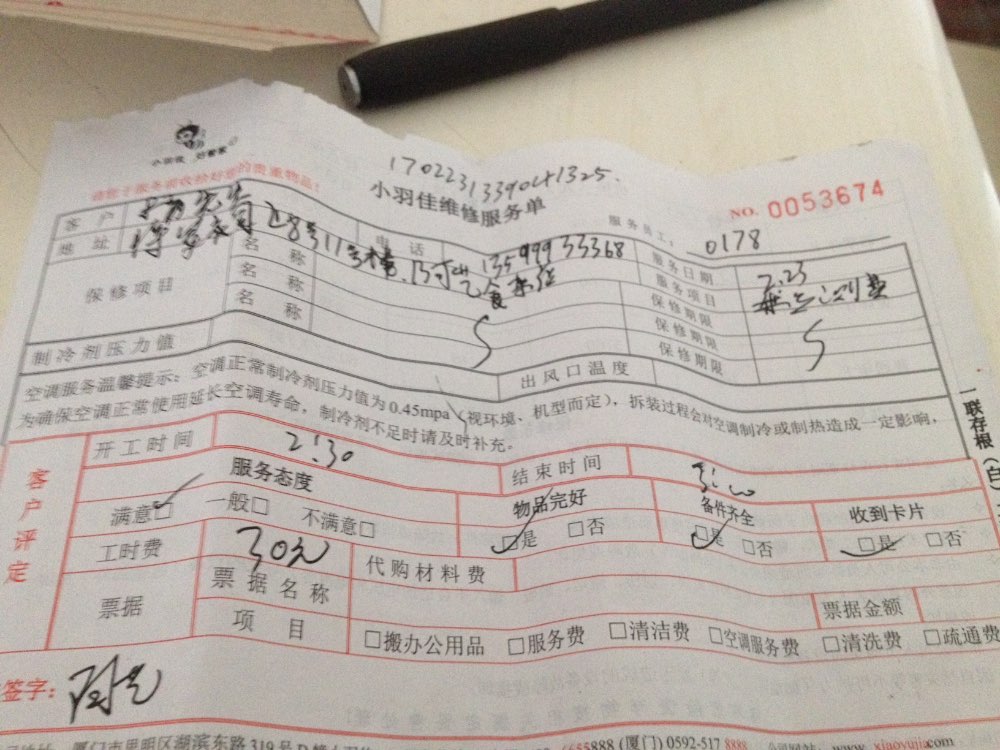 小羽佳 好管家
请您于服务前收拾好您的贵重物品!
1702231339041325.
小羽佳维修服务单
NO. 0053674
服务员工: 0178
客户 先生 电话 13599933368 服务日期 2.23
地址 28号11号楼
保修项目 名称 服务项目
名称 保修期限
名称 保修期限
保修期限
制冷剂压力值 出风口温度
空调服务温馨提示: 空调正常制冷剂压力值为0.45mpa(视环境、机型而定), 拆装过程会对空调制冷或制热造成一定影响,
为确保空调正常使用延长空调寿命, 制冷剂不足时请及时补充。
一联存根(白
客户评定
开工时间 2:30 结束时间 3:00
服务态度 物品完好 备件齐全 收到卡片
满意□ 一般□ 不满意□ □是 □否 □是 □否 □是 □否
工时费 30元 代购材料费
票据 票据名称 票据金额
项目 □搬办公用品 □服务费 □清洁费 □空调服务费 □清洗费 □疏通费
签字:
厦门市思明区湖滨东路319号D 5888 (厦门) 0592-517 8888 www.xiaoyujia.com